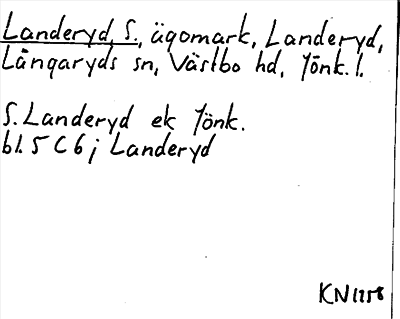 Landeryd, S., ägomark, Landeryd,
Långaryds sn, Västbo hd, Jönk. l.
S. Landeryd ek Jönk.
bl. 5 C 6 j Landeryd